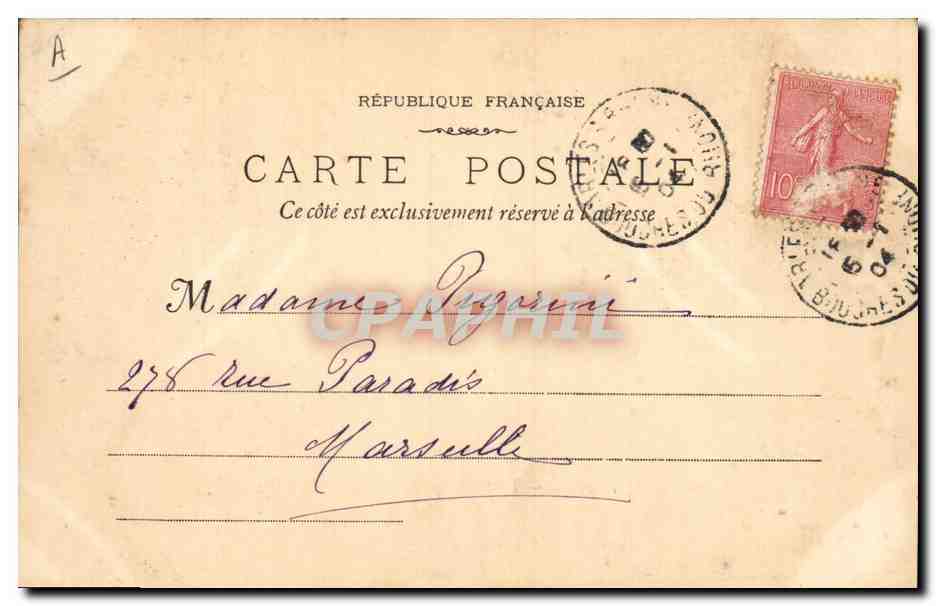 A
RÉPUBLIQUE FRANÇAISE
CARTE POSTALE
Ce côté est exclusivement réservé à l'adresse
Madame Pigorini
278 rue Paradis
Marseille
CPAPHIL
10
BOUCHES DU RHONE
BOUCHES DU RHONE